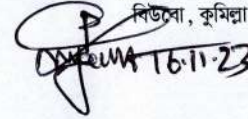 বিউবো, কুমিল্লা
16.11.23